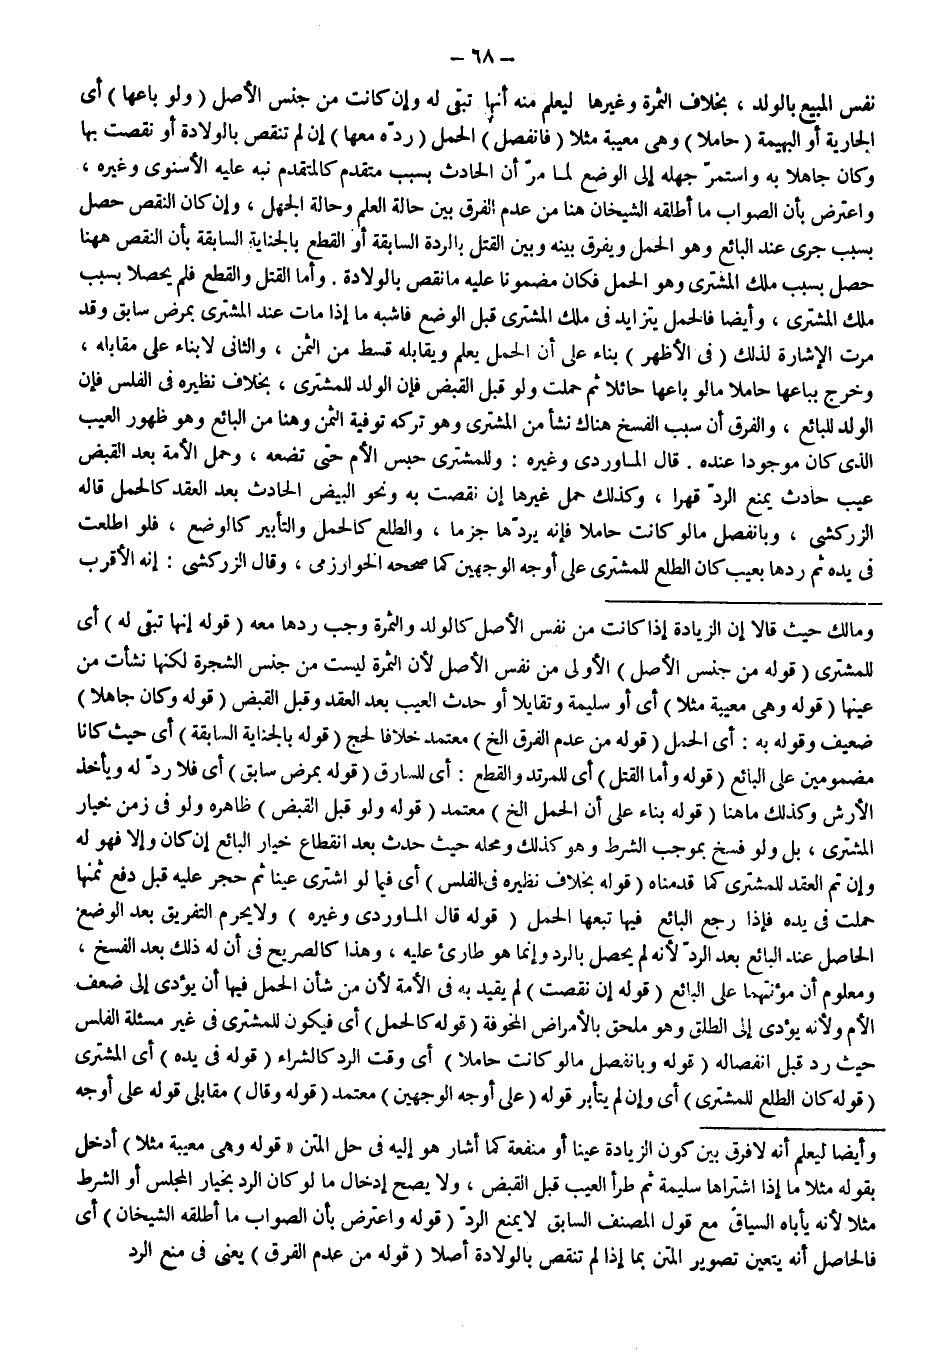 – ٦٨ –
نفس المبيع بالولد ، بخلاف الثمرة وغيرها ليعلم منه أنها تبقى له وإن كانت من جنس الأصل ( ولو باعها ) أى
الجارية أو البهيمة ( حاملا ) وهى معيبة مثلا ( فانفصل ) الحمل ( ردّه معها ) إن لم تنقص بالولادة أو نقصت بها
وكان جاهلا به واستمرّ جهله إلى الوضع لما مرّ أن الحادث بسبب متقدم كالمتقدم نبه عليه الأسنوى وغيره ،
واعترض بأن الصواب ما أطلقه الشيخان هنا من عدم الفرق بين حالة العلم وحالة الجهل ، وإن كان النقص حصل
بسبب جرى عند البائع وهو الحمل ويفرق بينه وبين القتل بالردة السابقة أو القطع بالجناية السابقة بأن النقص ههنا
حصل بسبب ملك المشترى وهو الحمل فكان مضمونا عليه مانقص بالولادة . وأما القتل والقطع فلم يحصلا بسبب
ملك المشترى ، وأيضا فالحمل يتزايد فى ملك المشترى قبل الوضع فاشبه ما إذا مات عند المشترى بمرض سابق وقد
مرت الإشارة لذلك ( فى الأظهر ) بناء على أن الحمل يعلم ويقابله قسط من الثمن ، والثانى لا بناء على مقابله ،
وخرج بباعها حاملا مالو باعها حائلا ثم حملت ولو قبل القبض فإن الولد للمشترى ، بخلاف نظيره فى الفلس فإن
الولد للبائع ، والفرق أن سبب الفسخ هناك نشأ من المشترى وهو تركه توفية الثمن وهنا من البائع وهو ظهور العيب
الذى كان موجودا عنده . قال الماوردى وغيره : وللمشترى حبس الأم حتى تضعه ، وحمل الأمة بعد القبض
عيب حادث يمنع الردّ قهرا ، وكذلك حمل غيرها إن نقصت به ونحو البيض الحادث بعد العقد كالحمل قاله
الزركشى ، وبانفصل مالو كانت حاملا فإنه يردّها جزما ، والطلع كالحمل والتأبير كالوضع ، فلو اطلعت
فى يده ثم ردها بعيب كان الطلع للمشترى على أوجه الوجهين كما صححه الخوارزمى ، وقال الزركشى : إنه الأقرب
ومالك حيث قالا إن الزيادة إذا كانت من نفس الأصل كالولد والثمرة وجب ردها معه ( قوله إنها تبقى له ) أى
للمشترى ( قوله من جنس الأصل ) الأولى من نفس الأصل لأن الثمرة ليست من جنس الشجرة لكنها نشأت من
عينها ( قوله وهى معيبة مثلا ) أى أو سليمة وتقايلا أو حدث العيب بعد العقد وقبل القبض ( قوله وكان جاهلا )
ضعيف وقوله به : أى الحمل ( قوله من عدم الفرق الخ ) معتمد خلافا لحج ( قوله بالجناية السابقة ) أى حيث كانا
مضمومين على البائع ( قوله وأما القتل ) أى للمرتد والقطع : أى للسارق ( قوله بمرض سابق ) أى فلا ردّ له ويأخذ
الأرش وكذلك ماهنا ( قوله بناء على أن الحمل الخ ) معتمد ( قوله ولو قبل القبض ) ظاهره ولو فى زمن خيار
المشترى ، بل ولو فسخ بموجب الشرط وهو كذلك ومحله حيث حدث بعد انقطاع خيار البائع إن كان وإلا فهو له
وإن تم العقد للمشترى كما قدمناه ( قوله بخلاف نظيره فى الفلس ) أى فيما لو اشترى عينا ثم حجر عليه قبل دفع ثمنها
حملت فى يده فإذا رجع البائع فيها تبعها الحمل ( قوله قال الماوردى وغيره ) ولايحرم التفريق بعد الوضع
الحاصل عند البائع بعد الردّ لأنه لم يحصل بالرد وإنما هو طارئ عليه ، وهذا كالصريح فى أن له ذلك بعد الفسخ ،
ومعلوم أن مؤنتهما على البائع ( قوله إن نقصت ) لم يقيد به فى الأمة لأن من شأن الحمل فيها أن يؤدى إلى ضعف
الأم ولأنه يؤدى إلى الطلق وهو ملحق بالأمراض المخوفة ( قوله كالحمل ) أى فيكون للمشترى فى غير مسئلة الفلس
حيث رد قبل انفصاله ( قوله وبانفصل مالو كانت حاملا ) أى وقت الرد كالشراء ( قوله فى يده ) أى المشترى
( قوله كان الطلع للمشترى ) أى وإن لم يتأبر قوله ( على أوجه الوجهين ) معتمد ( قوله وقال ) مقابلى قوله على أوجه
وأيضا ليعلم أنه لافرق بين كون الزيادة عينا أو منفعة كما أشار هو إليه فى حل المتن « قوله وهى معيبة مثلا ) أدخل
بقوله مثلا ما إذا اشتراها سليمة ثم طرأ العيب قبل القبض ، ولا يصح إدخال ما لو كان الرد بخيار المجلس أو الشرط
مثلا لأنه يأباه السياق مع قول المصنف السابق لايمنع الردّ ( قوله واعترض بأن الصواب ما أطلقه الشيخان ) أى
فالحاصل أنه يتعين تصوير المتن بما إذا لم تنقص بالولادة أصلا ( قوله من عدم الفرق ) يعنى فى منع الرد